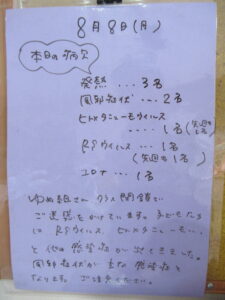 8月8日(月)
本日の病欠
発熱 ... 3名
胃腸症状 ... 2名
ヒトメタニューモウイルス
.... 1名(先週の1名)
RSウイルス ... 1名
(先週の1名)
コロナ ... 1名
ゆめ組さん クラス閉鎖で
ご迷惑をかけています。子どもたち
に RSウイルス ヒトメタニューモ...
と 他の感染症が 出てきました。
胃腸症状が 主な 感染症と
なります。ご注意ください。